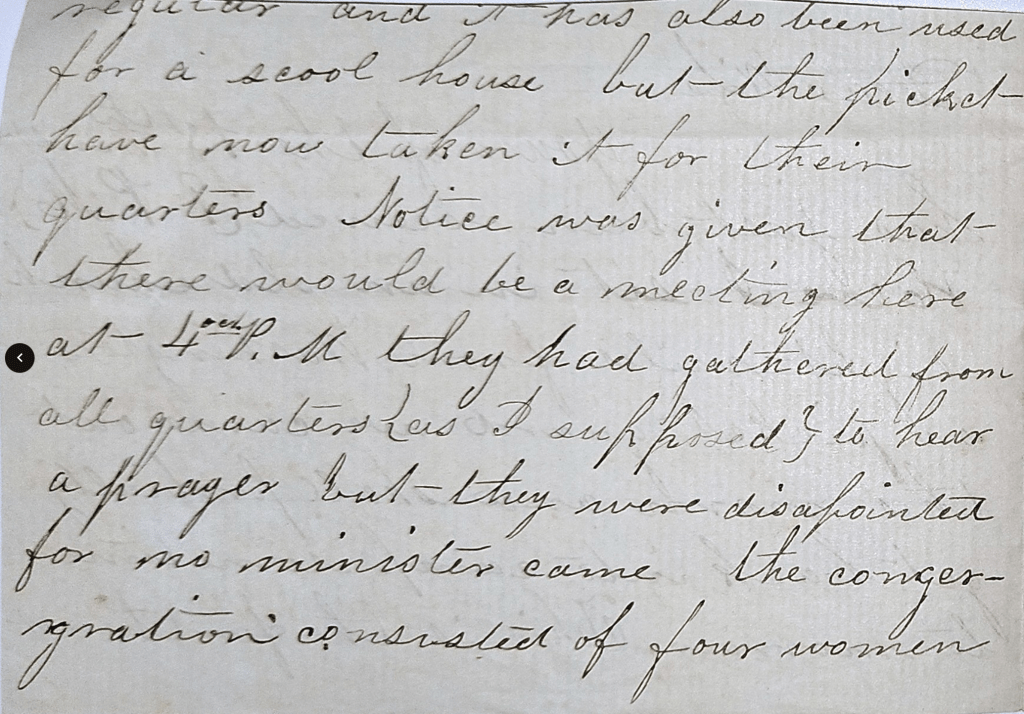 regular and it has also been used
for a scool house but the picket
have now taken it for their
quarters Notice was given that
there would be a meeting here
at 4 ock P. M they had gathered from
all quarters {as I supposed} to hear
a prager but they were disapointed
for no minister came the conger-
gration consisted of four women